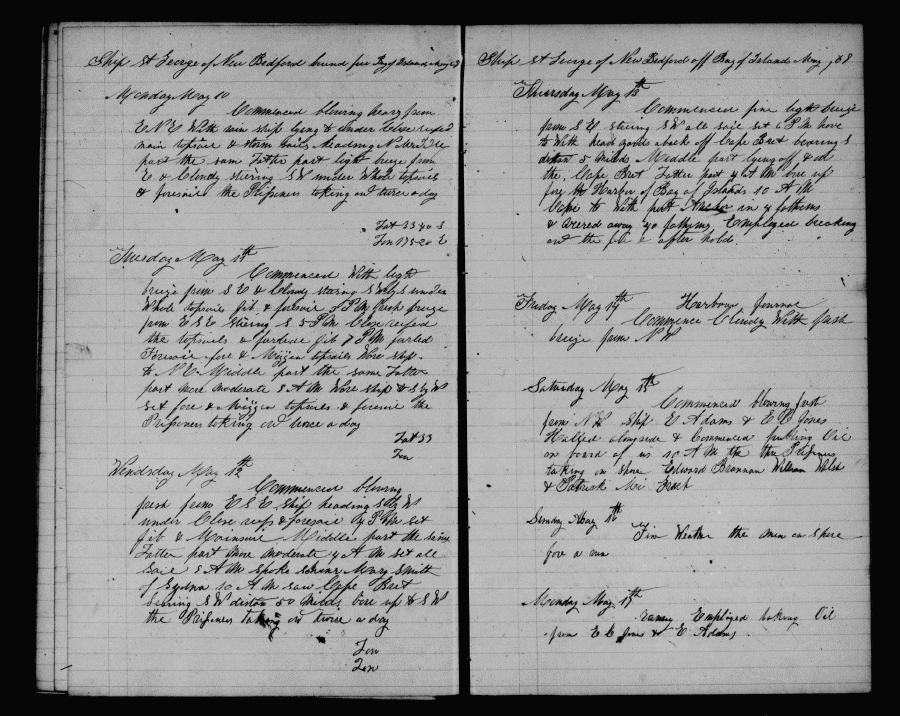 Ship St George of New Bedford bound for Bay of Islands May 68
Monday May 10
Commenced blowing heavy from
E N E With rain ship lying to under Close reefed
main topsail & storm sails Heading N
part the sam Latter part light breeze from
E & Cloudy steering S W under Whole topsails
& foresail the Prisoners taking out twice a day
Lat 33 40 S
Lon 175-20 E
Tuesday May 11th
Commenced With light
breeze from S E & Cloudy staring S under
Whole topsails jib & foresail P M fresh breeze
from E S E steering S 5 P M Close reefed
the topsails & furled jib 7 P M furled
Foresail fore & Mizzen topsails Wore ship
to N E Middle part the same Latter
part more moderate 5 A M Wore ship to S by W
set fore & Mizzen topsails & foresail the
Prisoners taking out twice a day
Lat 33
Lon
Wendsday May 12th
Commenced blowing
fresh from E S E ship heading S by W
under Close reefs & foresail 4 P M set
jib & Mainsail Middle part the same
Latter part more moderate 4 A M set all
Sail 5 A M spoke schnr Mary Smith
of Sydna 10 A M saw Cape Bret
bearing S W distan 50 Miles, bore up to S W
the Prisoners taking out twice a day
Lon
Lon
Ship St George of New Bedford off Bay of Island May, 68
Thursday May 13th
Commenced fine light breeze
from S E steering S W all sail set 6 P M hove
to With head yards aback off Cape Bret bearing S
distan 5 Miles Middle part lying off &
the Cape Bret Latter part 4 A M bore up
for the Harbor of Bay of Islands 10 A M
Came to With port Anchor in 7 fathoms
& veered away 40 fathoms Employed breaking
out the fore & after hold.
Friday May 14th Harbour Journal
Commence Cloudy With fresh
breeze from N W
Saturday May 15th
Commenced blowing fresh
from N W Ship E Adams & E C Jones
Hauled alongside & Commenced putting Oil
on board of us 10 A M the three Prisoners
taking on shore Edward Brannan William Walsh
& Patrick
Sunday May 16th
Fine Weather the men on shore
fore a run
Monday May 17th
rainy Employed taking Oil
from E C Jones & E Adams